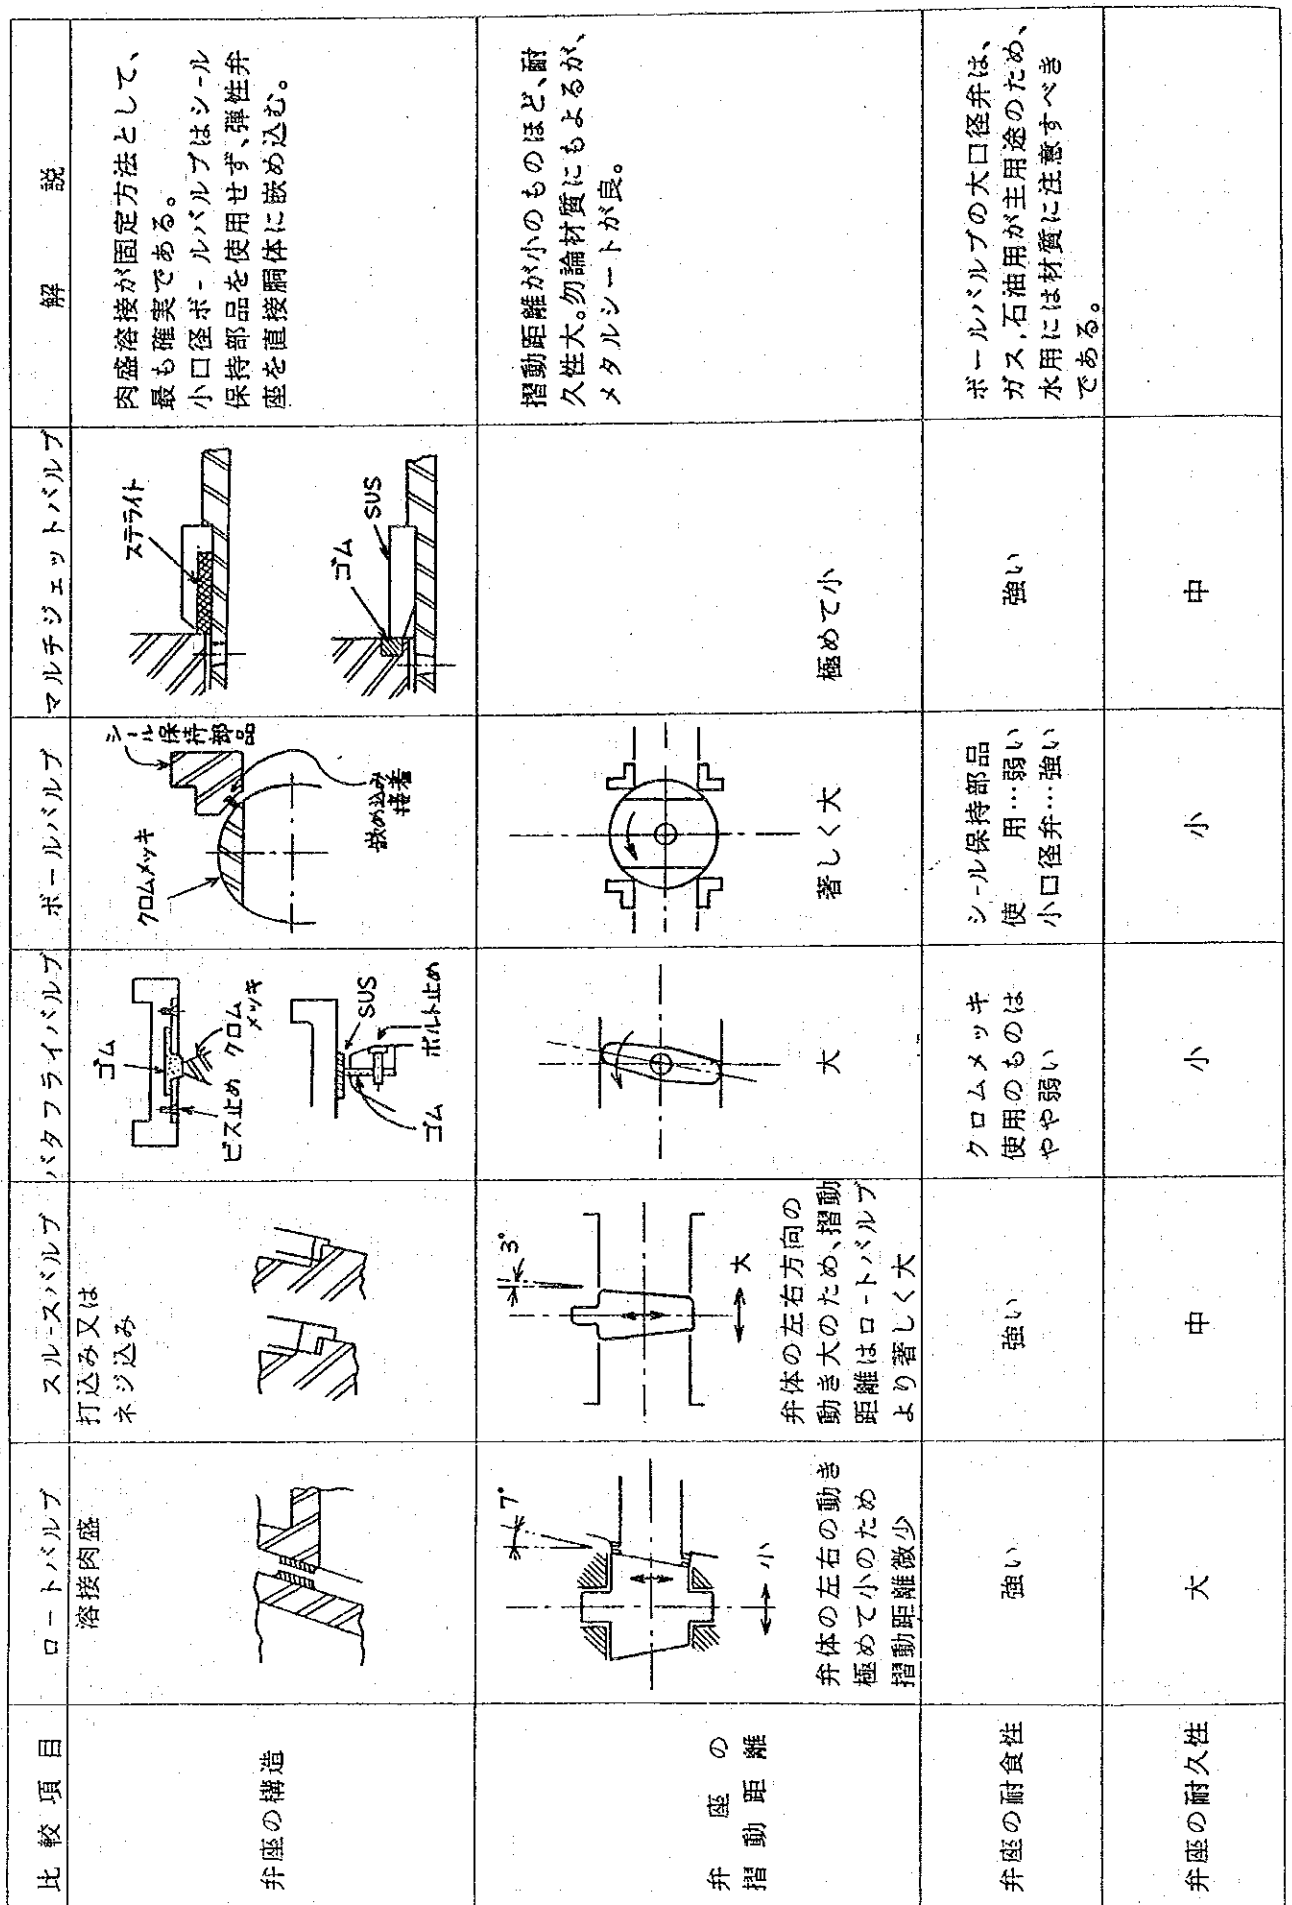 比較項目
ロートバルブ
スルースバルブ
バタフライバルブ
ボールバルブ
マルチジェットバルブ
解説
弁座の構造
溶接肉盛
打込み又は
ネジ込み
ゴム
ビス止め
クロム
メッキ
SUS
ボルト止め
ゴム
クロムメッキ
シール保持部品
嵌め込み
接着
ステライト
ゴム
SUS
肉盛溶接が固定方法として、
最も確実である。
小口径ボールバルブはシール
保持部品を使用せず、弾性弁
座を直接胴体に嵌め込む。
弁座の
摺動距離
7°
小
弁体の左右の動き
極めて小のため
摺動距離微少
3°
大
弁体の左右方向の
動き大のため、摺動
距離はロートバルブ
より著しく大
大
著しく大
極めて小
摺動距離が小のものほど、耐
久性大。勿論材質にもよるが、
メタルシートが良。
弁座の耐食性
強い
強い
クロムメッキ
使用のものは
やや弱い
シール保持部品
使 用…弱い
小口径弁…強い
強い
ボールバルブの大口径弁は、
ガス,石油用が主用途のため、
水用には材質に注意すべき
である。
弁座の耐久性
大
中
小
小
中